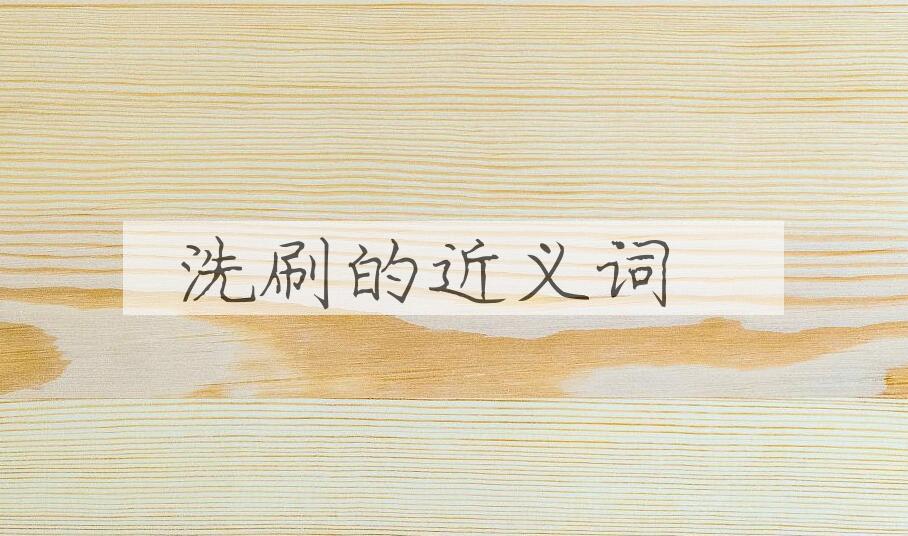 洗刷的近义词